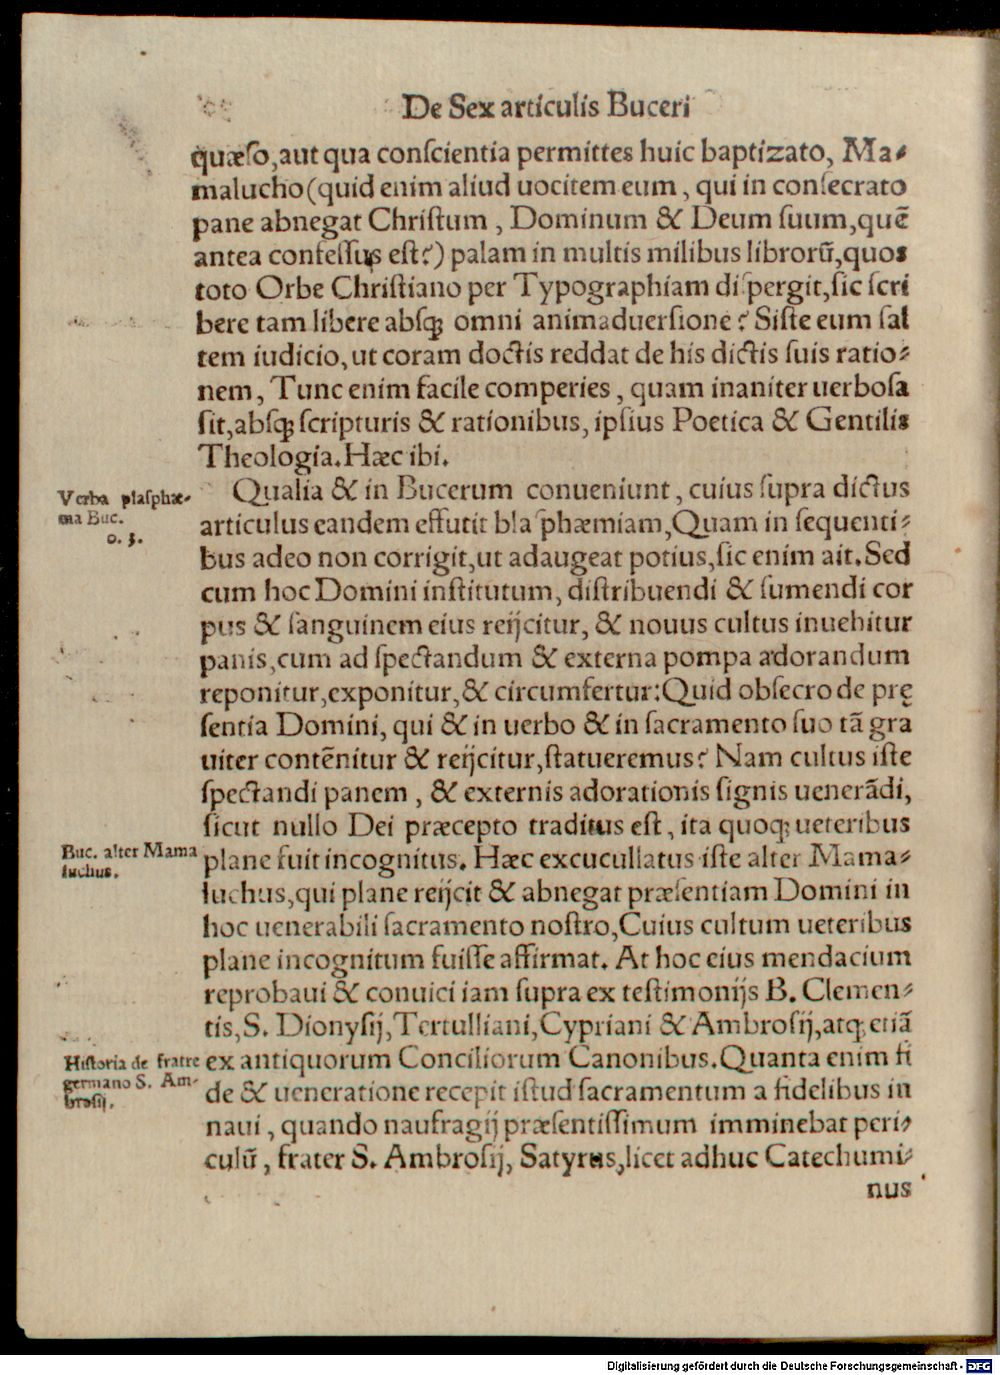 De Sex articulis Buceri
quæſo,aut qua conſcientia permittes huic baptizato, Ma⸗
malucho(quid enim aliud uocitem eum, qui in conſecrato
pane abnegat Chriſtum, Dominum & Deum ſuum,quē
antea confeſſus eſt?) palam in multis milibus librorū,quos
toto Orbe Chriſtiano per Typographiam diſpergit,ſic ſcri
bere tam libere abſq; omni animaduerſione? Siſte eum ſal
tem iudicio,ut coram doctis reddat de his dictis ſuis ratio⸗
nem, Tunc enim facile comperies, quam inaniter uerboſa
ſit,abſq; ſcripturis & rationibus, ipſius Poetica & Gentilis
Theologia.Hæc ibi.
Qualia & in Bucerum conueniunt, cuius ſupra dictus
Verba plaſphæ⸗
ma Buc.
o. 3.
articulus eandem effutit blaſphæmiam,Quam in ſequenti⸗
bus adeo non corrigit,ut adaugeat potius,ſic enim ait.Sed
cum hoc Domini inſtitutum, diſtribuendi & ſumendi cor
pus & ſanguinem eius reijcitur, & nouus cultus inuehitur
panis,cum ad ſpectandum & externa pompa adorandum
reponitur,exponitur,& circumfertur:Quid obſecro de prę
ſentia Domini, qui & in uerbo & in ſacramento ſuo tā gra
uiter contēnitur & reijcitur,ſtatueremus? Nam cultus iſte
ſpectandi panem, & externis adorationis ſignis uenerādi,
ſicut nullo Dei præcepto traditus eſt, ita quoq; ueteribus
plane fuit incognitus. Hæc excucullatus iſte alter Mama⸗
Buc. alter Mama
luchus.
luchus,qui plane reijcit & abnegat præſentiam Domini in
hoc uenerabili ſacramento noſtro,Cuius cultum ueteribus
plane incognitum fuiſſe affirmat. At hoc eius mendacium
reprobaui & conuici iam ſupra ex teſtimonijs B. Clemen⸗
tis,S. Dionyſij,Tertulliani,Cypriani & Ambroſij,atq; etiā
ex antiquorum Conciliorum Canonibus.Quanta enim fi
Hiſtoria de fratre
germano S. Am⸗
broſij.
de & ueneratione recepit iſtud ſacramentum a fidelibus in
naui, quando naufragij præſentiſſimum imminebat peri⸗
culū, frater S. Ambroſij, Satyrus,licet adhuc Catechumi⸗
nus
Digitalisierung gefördert durch die Deutsche Forschungsgemeinschaft - DFG